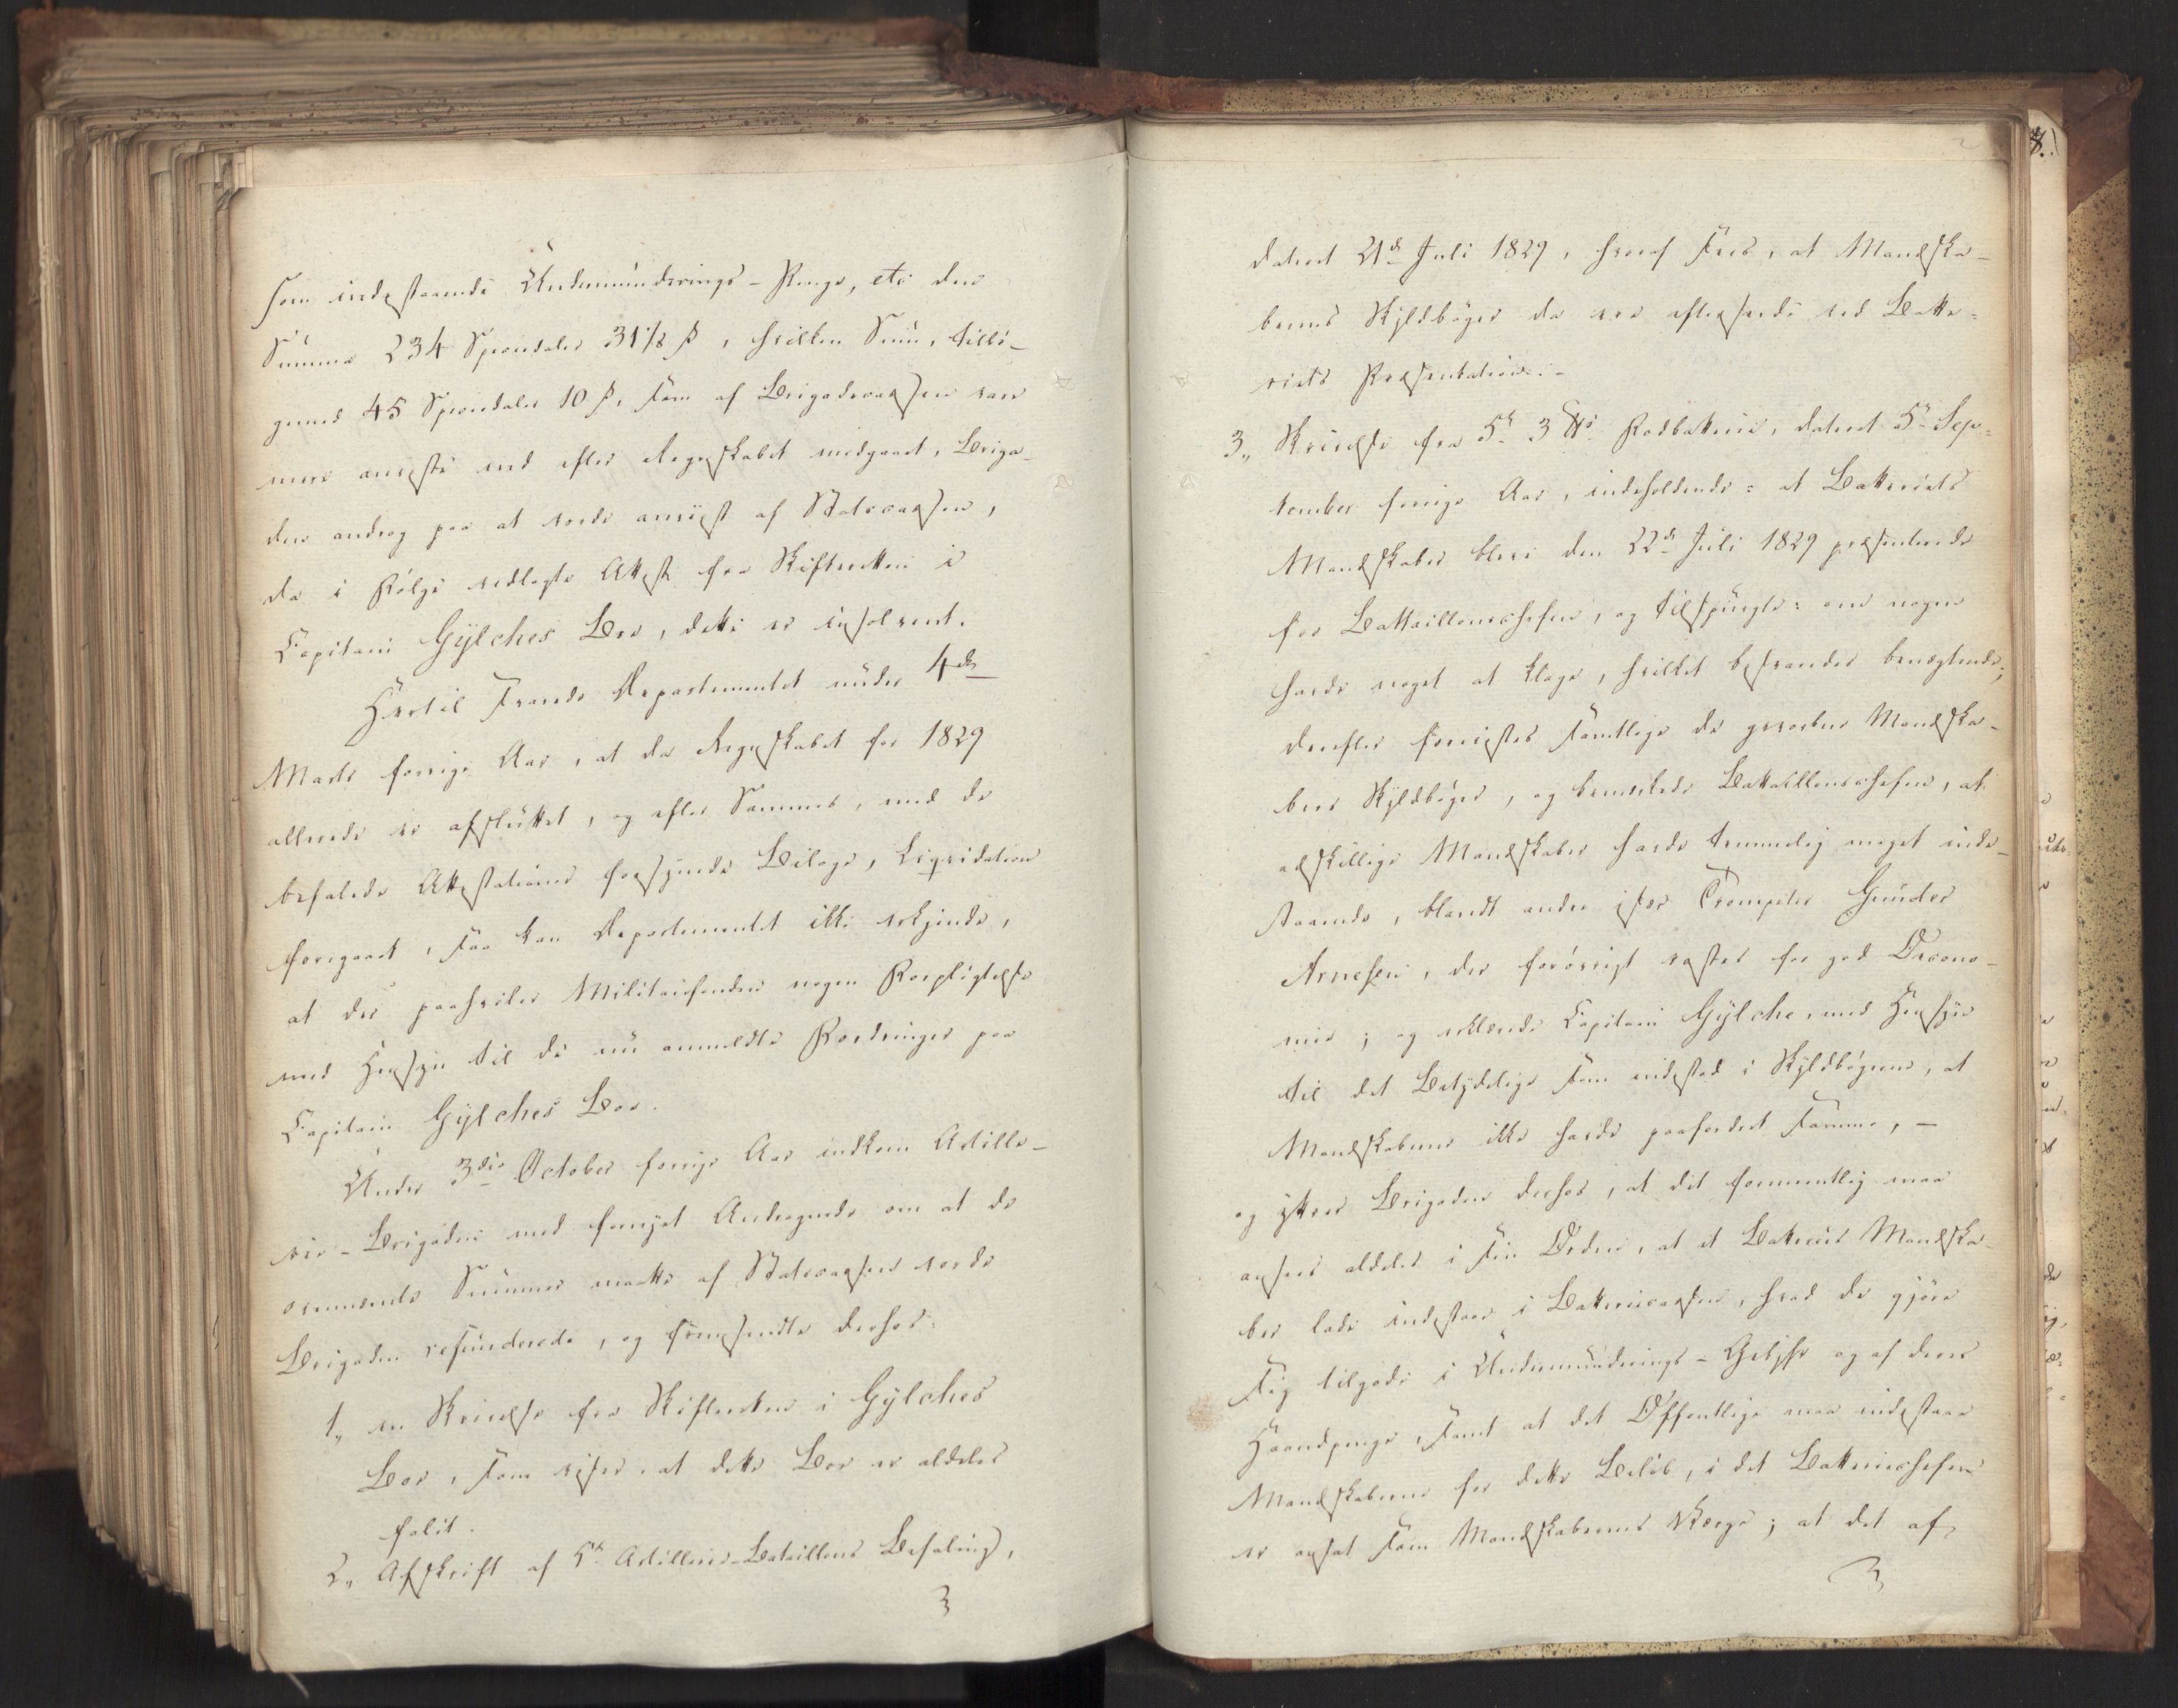 som indestaaende Undermunderings-Penge, etc: den
Summa 234 Speciedaler 31 1/8 ß, hvilken Sum, tillí-
gemed 45 Speciedaler 10 ß, som af Brigadecassen vare
mere anviste end efter Regnskabet medgaaet, Briga-
den androg paa at vorde anviist af Statscassen,
da i Følge vedlagte Attest fra Skifteretten i
Capitain Gylches Boe, dette er insolvent.
Hertil svarede Departementet under 4de
Marts forrige Aar, at da Regnskabet for 1829
allerede er afsluttet, og efter Samme, med de
befalede Attestationer forsynede Bilage, Liqvidation
foregaaet, saa kan Departementet ikke erkjende,
at der paahviler Militairfonden nogen Forpligtelse
med Hensyn til de nu anmeldte Fordringer paa
Capitain Gylches Boe.
Under 3die October forrige Aar indkom Artille-
rie-Brigaden med fornyet Andragende om at de
ovennævnte Summer maatte af Statscassen vorde
Brigaden refunderede, og fremsendte derhos:
1, en Skrivelse fra Skifteretten i Gylches
Boe, som viser, at dette Boe er aldeles
falit.
2, Afskrift af 5te Artillerie-Bataillons Befaling,
3
dateret 21de Juli 1829, hvoraf sees, at Mandska-
bernes Skyldbøger da ere eftersendte ved Batte-
riets Præsentation.-
3, Skrivelse fra 5te 3 &. Fodbatterie, dateret 5te Sep-
tember forrige Aar, indeholdende: at Batteriets
Mandskaber bleve den 22de Juli 1829 præsenterede
for Battaillonschefen, og tilspurgte: om nogen
havde noget at klage, hvilket besvaredes benægtende;
derefter foreviistes samtlige de gevorbne Mandska-
bers Skyldbøger, og bemærkede Battaillonschefen, at
adskillige Mandskaber havde temmelig meget inde-
staaende, blandt andre især Trompeter Gunder
Arnesen, der forøvrigt rostes for god Oecono-
mie; og erklærede Capitain Gylche, med Hensyn
til det Betydelige som indestod i Skyldbøgerne, at
Mandskaberne ikke havde paafordret samme, -
og yttrer Brigaden derhos, at det formeentlig maa
ansees aldeles i sin Orden, at et Batteries Mandska-
ber lade indestaae i Batteriecassen, hvad de gjøre
sig tilgode i Undermunderings-Godtgj og af deres
Haandpenge, samt at det Offentlige maa indestaae
Mandskaberne for dette Beløb, i det Batteriechefen
er ansat som Mandskabernes Værge; at det af
3